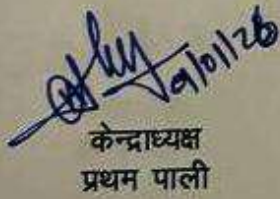 9/01/26
केन्द्राध्यक्ष
प्रथम पाली